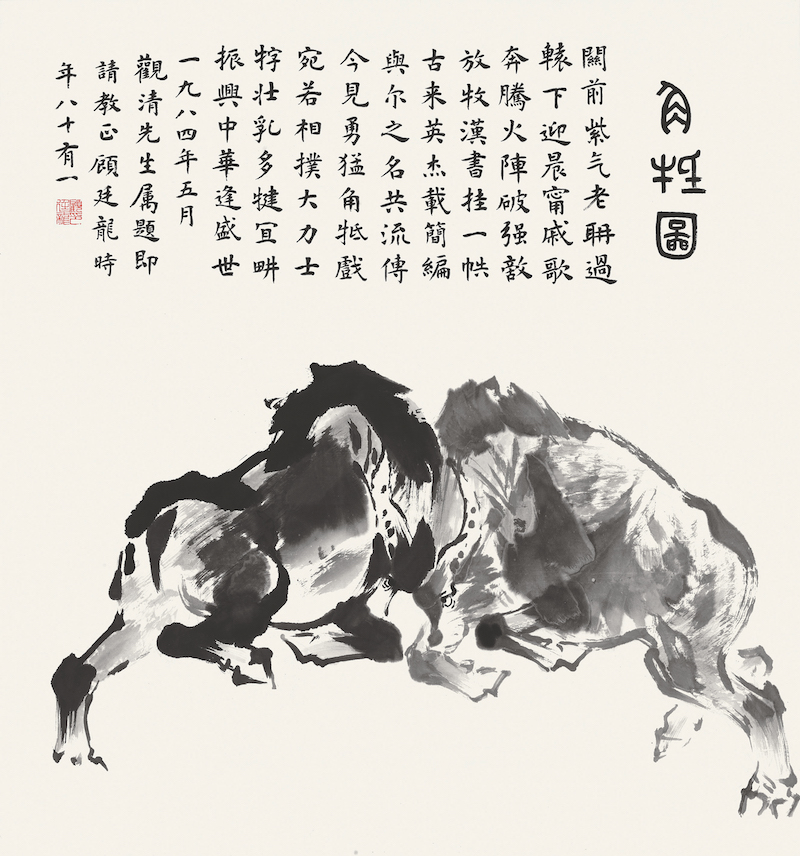 角牴圖
關前紫气老聃過
轅下迎晨甯戚歌
奔騰火陣破强敵
放牧漢書挂一帙
古来英杰載簡編
與尔之名共流傳
今見勇猛角牴戲
宛若相撲大力士
牸壮乳多犍宜畊
振興中華逢盛世
一九八四年五月
觀清先生属題即
請教正顧廷龍時
年八十有一